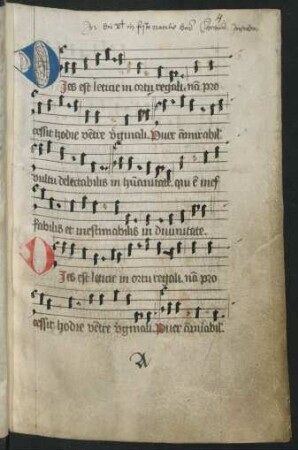 Dies est leticie in ortu regali. nã pro
cessit hodie vẽtre ỽginali. Puer am̃irabil'
vultu delectabilis in hũanitate. qui ẽ inef
fabilis et inestimabilis in diuinitate.
Dies est leticie in ortu regali. nã pro
cessit hodie vẽtre ỽginali. Puer am̃irabil'.
A